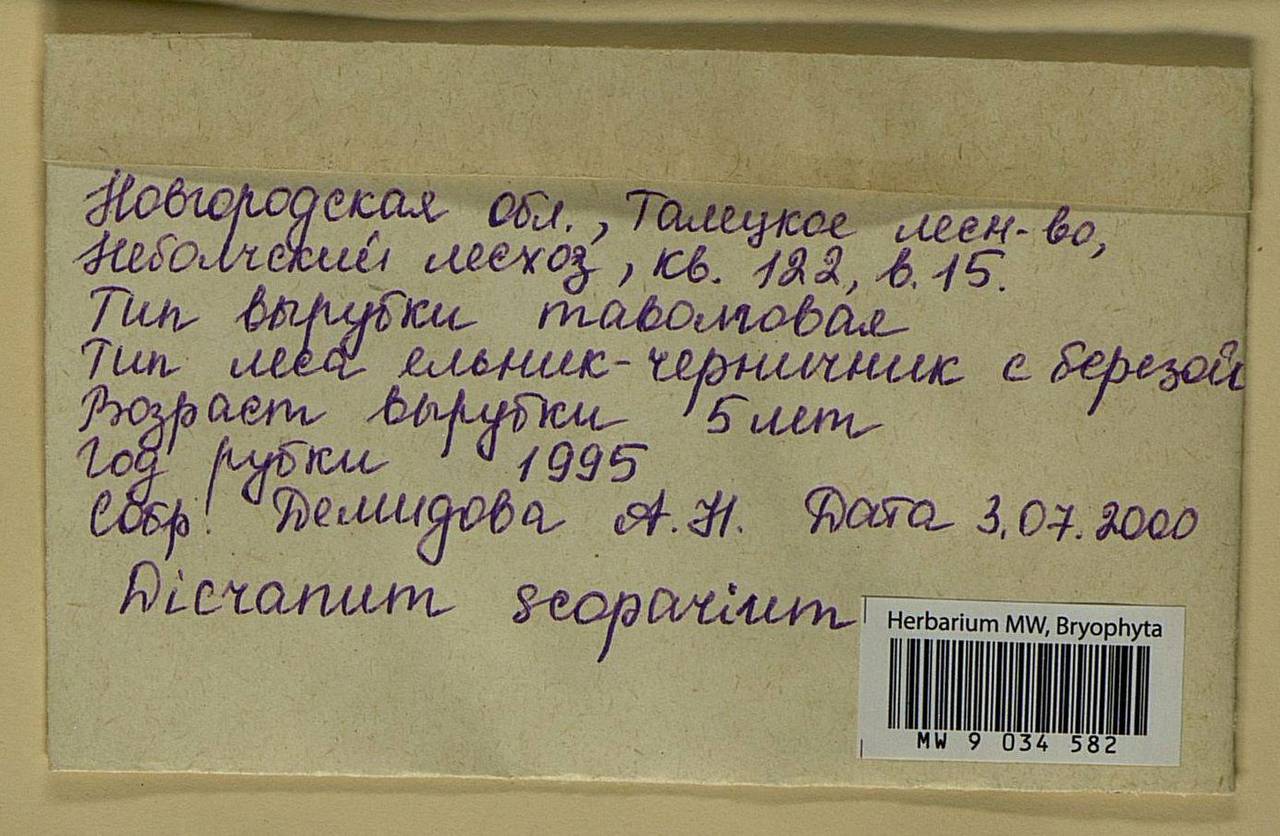 Новгородская обл., Талецкое лесн-во,
Неболчский лесхоз, кв. 122, в. 15.
Тип вырубки таволговая
Тип леса ельник-черничник с березой
Возраст вырубки 5 лет
Год рубки 1995
Собр. Демидова А.Н. Дата 3.07.2000
Dicranum scoparium
Herbarium MW, Bryophyta
MW 9 034 582